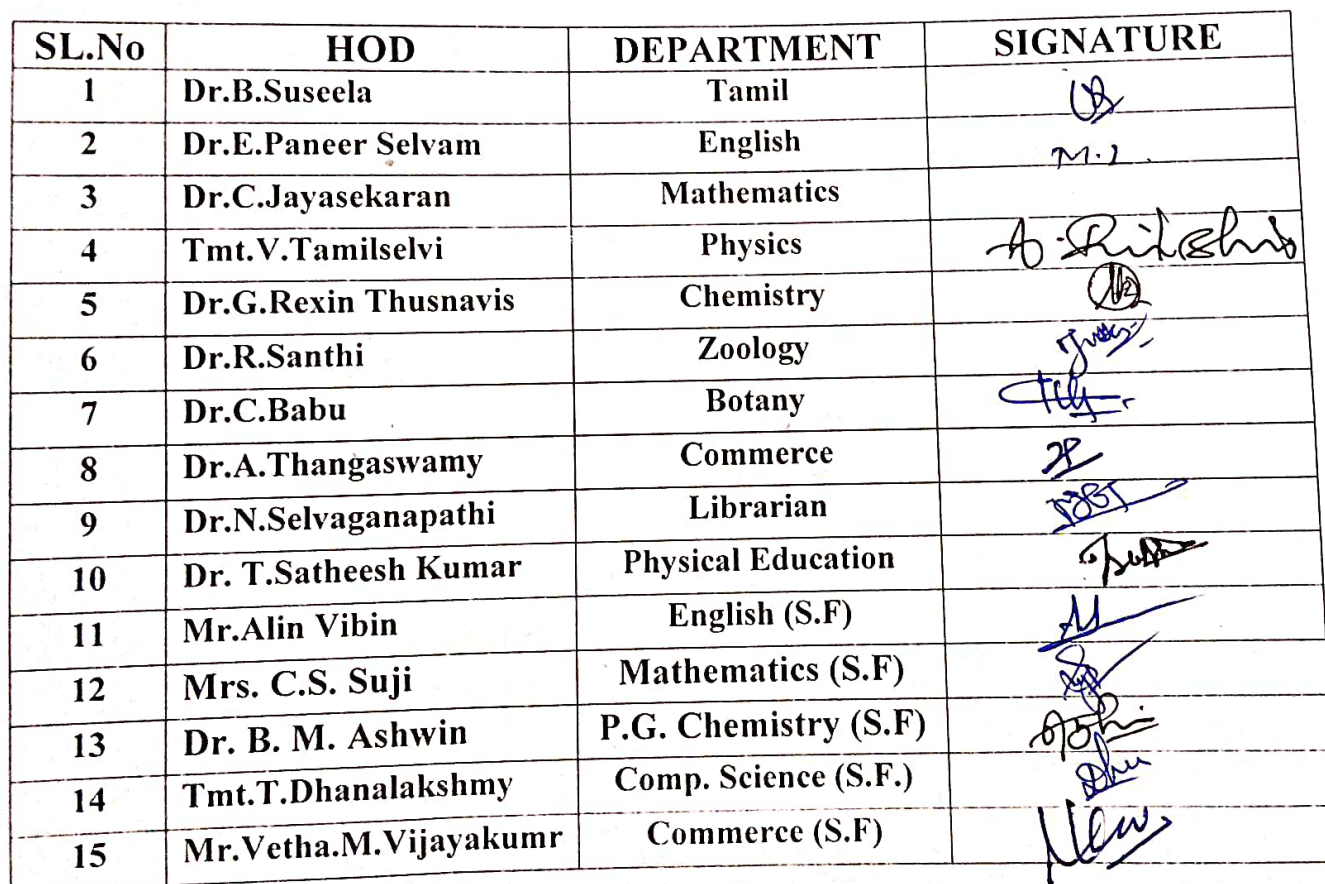 SL.No HOD DEPARTMENT SIGNATURE
1 Dr.B.Suseela Tamil
2 Dr.E.Paneer Selvam English
3 Dr.C.Jayasekaran Mathematics
4 Tmt.V.Tamilselvi Physics
5 Dr.G.Rexin Thusnavis Chemistry
6 Dr.R.Santhi Zoology
7 Dr.C.Babu Botany
8 Dr.A.Thangaswamy Commerce
9 Dr.N.Selvaganapathi Librarian
10 Dr. T.Satheesh Kumar Physical Education
11 Mr.Alin Vibin English (S.F)
12 Mrs. C.S. Suji Mathematics (S.F)
13 Dr. B. M. Ashwin P.G. Chemistry (S.F)
14 Tmt.T.Dhanalakshmy Comp. Science (S.F.)
15 Mr.Vetha.M.Vijayakumr Commerce (S.F)